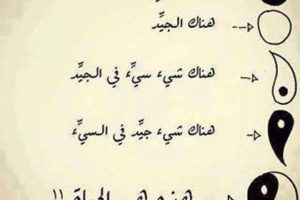 هناك الجيِّد
هناك شيء سيِّء في الجيِّد
هناك شيء جيِّد في السيِّء
هذه هي الحياة !!